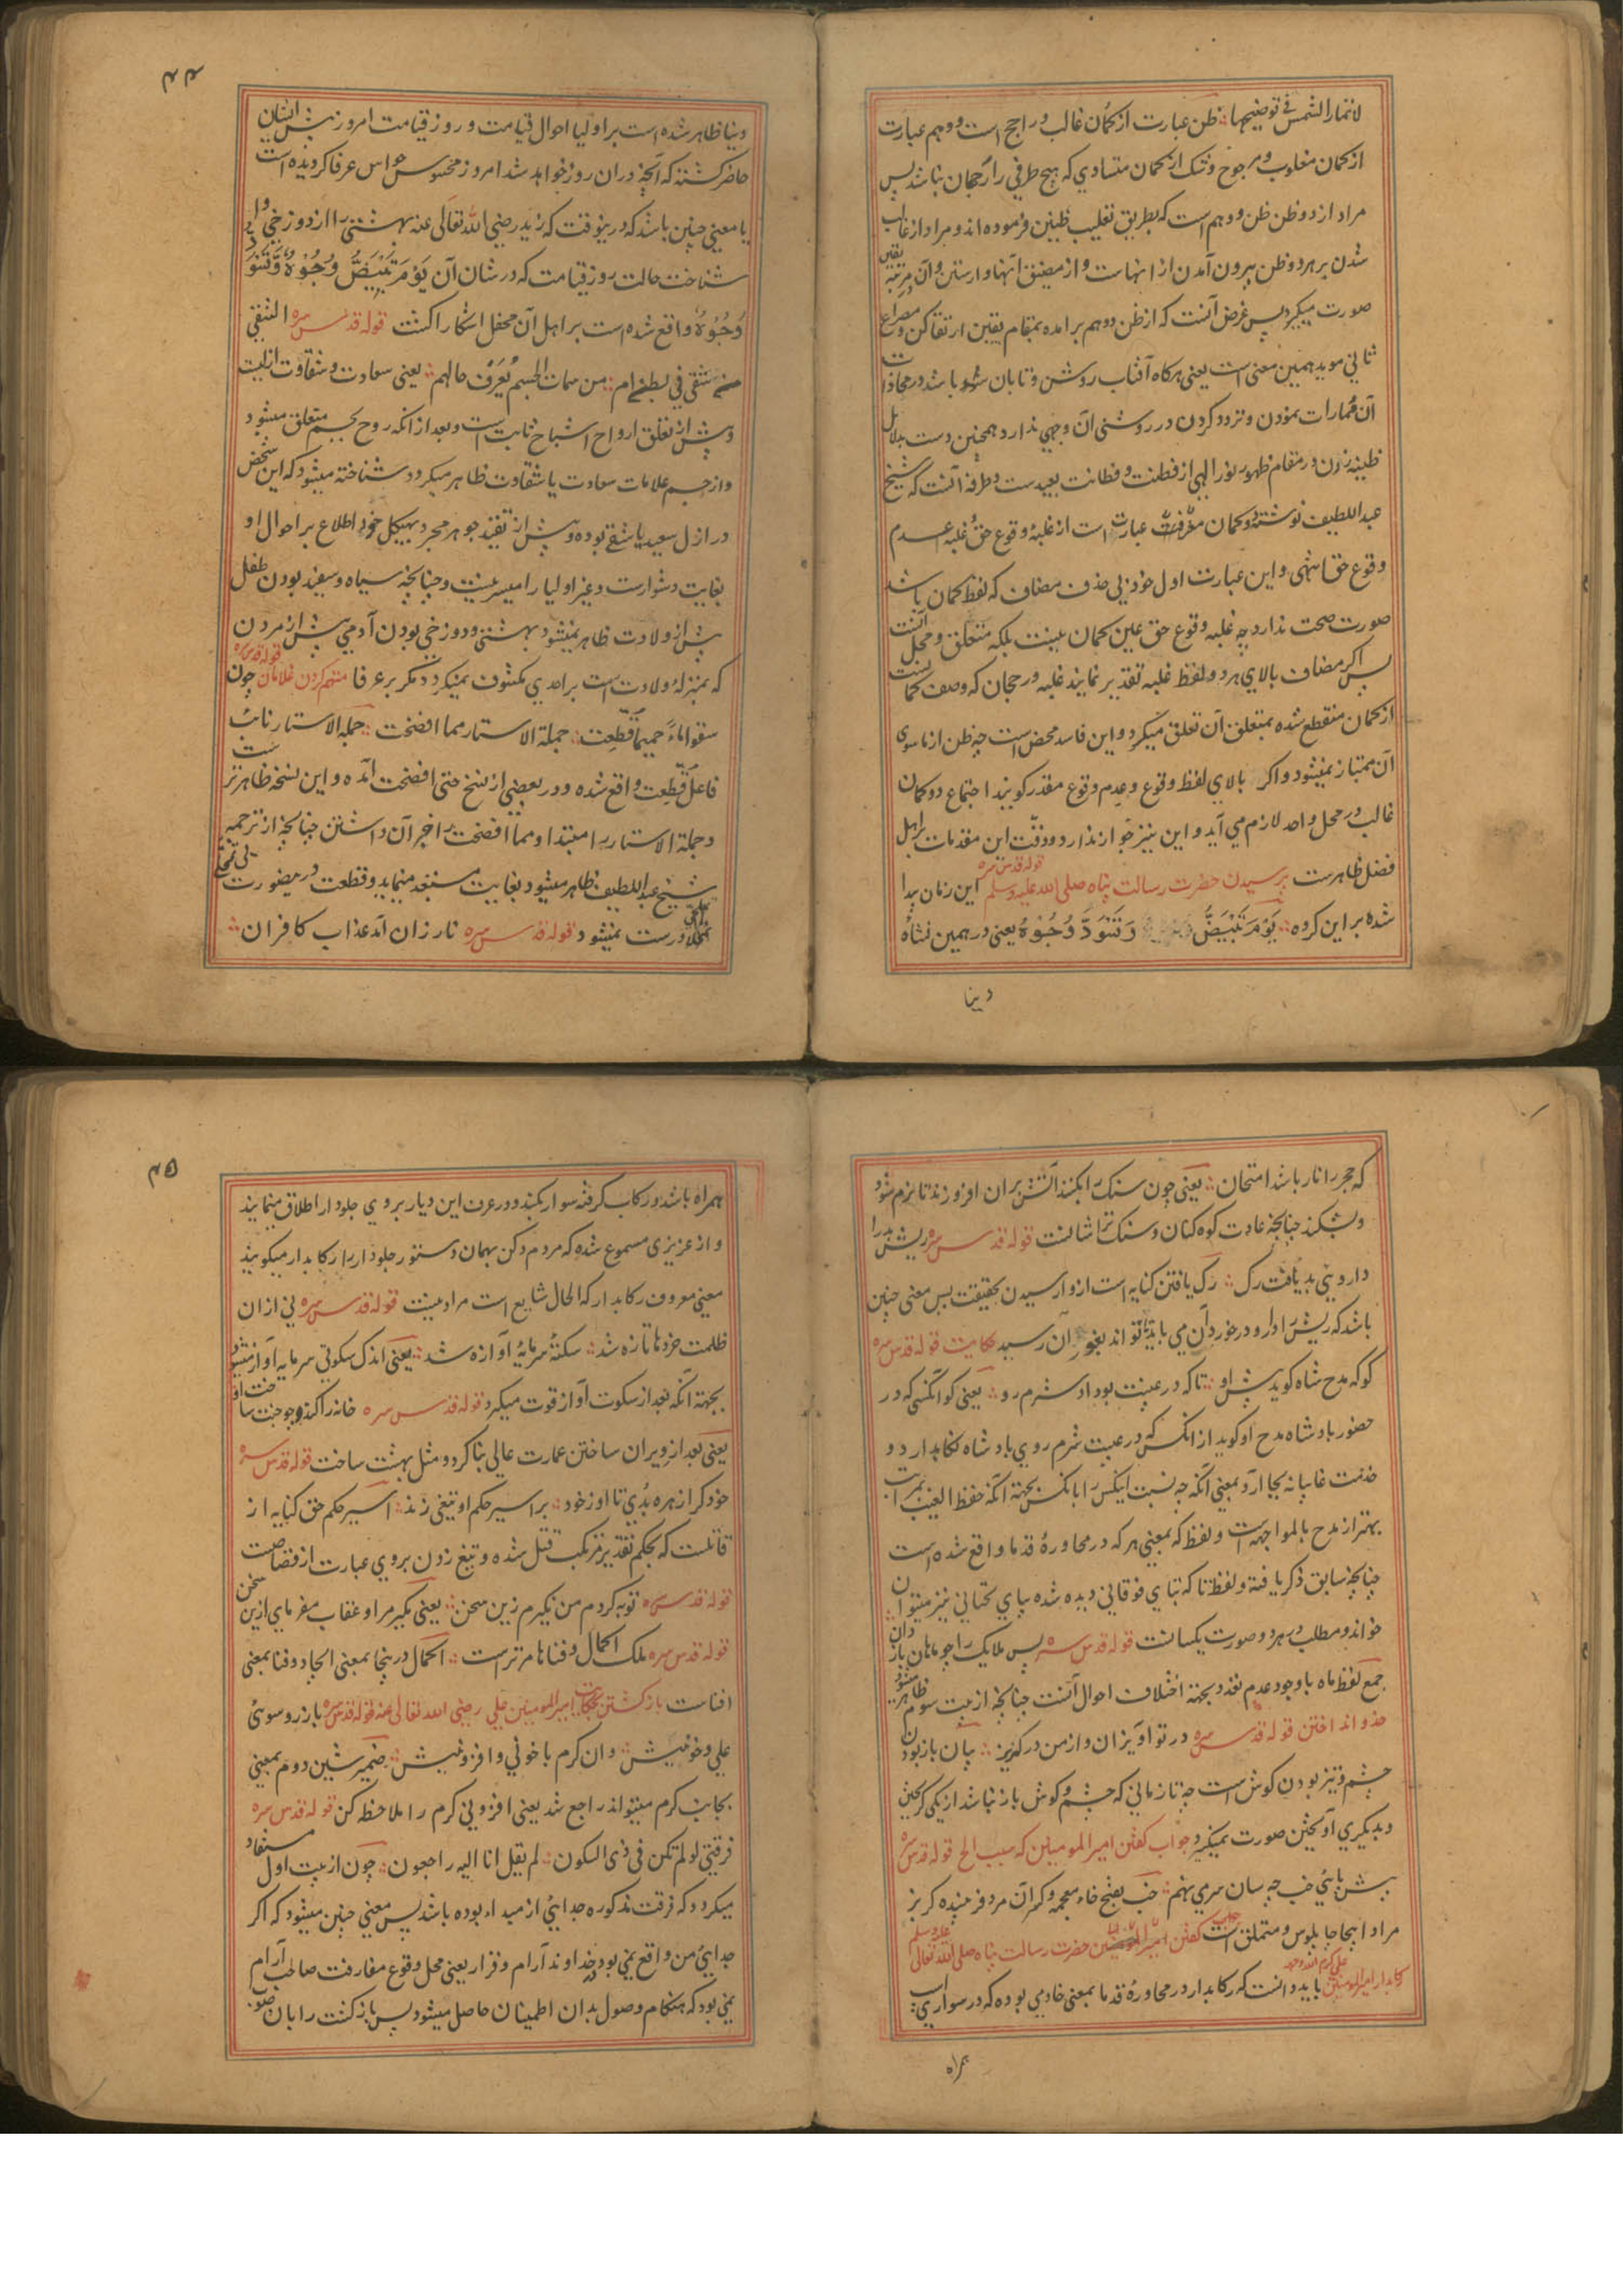 لاتمار الشمس فی توضیحها ظن عبارت از کمان غالب و راجح است و وهم عبارت
از کمان مغلوب و مرجوح و شک از کمان متساوی که هیچ طرفی را رجحان نباشد پس
مراد از دو ظن ظن و وهم است که بطریق تغلیب ظنین فرموده اند و مراد از غالب
شدن بر هر دو ظن بیرون آمدن از اینهاست و از مضیق آنها وارستن و آن مرتبه یقین
صورت میکیرد پس غرض آنست که از ظن و وهم برامده بمقام یقین ارتقا کن و مصراع
ثانی موید همین معنی است یعنی هرکاه آفتاب روشن و تابان شده باشد در محاذات
آن ممارات نمودن و تردد کردن در روشنی آن وجهی ندارد همچنین دست بدلایل
ظنیه زدن در مقام ظهور نور الهی از فطنت و فطانت بعیدست و طرفه آنست که شیخ
عبد اللطیف نوشته و کمان معرفت عبارت است از غلبه وقوع حق و غلبه عدم
وقوع حق انتهی و این عبارت اول خود بی حذف مضاف که لفظ کمان باشد
صورت صحت ندارد چه غلبه وقوع حق عین کمان نیست بلکه متعلق و محل آنست
پس اکر مضاف بالای هر دو لفظ غلبه تقدیر نمایند غلبه و رجحان که وصف کمانست
از کمان منقطع شده بمتعلق آن تعلق میکیرد و این فاسد محض است چه ظن از ماسوی
آن ممتاز نمیشود و اکر بالای لفظ وقوع و عدم وقوع مقدر کویند اجتماع دو کمان
غالب در محل واحد لازم می آید و این نیز جواز ندارد و دقت این مقدمات بر اهل
فضل ظاهرست پرسیدن حضرت رسالت پناه صلی الله علیه وسلم قوله قدس سره این زمان پیدا
شده بر این کروه یوم تبیض وتسود وجوه یعنی در همین نشأه
دنیا
۴۴
دنیا ظاهر شده است بر اولیا احوال قیامت و روز قیامت امروز پیش ایشان
حاضر کشته که آنچه در ان روز خواهد شد امروز محسوس حواس عرفا کردیده است
یا معنی چنین باشد که درینوقت که زید رضی الله تعالی عنه بهشتی را از دوزخی وا
شناخت حالت روز قیامت که در شان آن یوم تبیض وجوه وتسود
وجوه واقع شده است بر اهل آن محفل اشکارا کشت قوله قدس سره الشقی
من شقی فی بطن ام من سمات الجسم یعرف حالهم یعنی سعادت و شقاوت ازلیت
و پیش از تعلق ارواح اشباح ثابت است و بعد از انکه روح بجسم متعلق میشود
و از جسم علامات سعادت یا شقاوت ظاهر میکردد شناخته میشود که این شخص
در ازل سعید یا شقی بوده و پیش از تقید جوهر مجرد بهیکل خود اطلاع بر احوال او
بغایت دشوارست و غیر اولیا را میسر نیست و چنانچه سیاه و سفید بودن طفل
پیش از ولادت ظاهر نمیشود بهشتی و دوزخی بودن آدمی پیش از مردن
که بمنزله ولادت است بر احدی مکشوف نمیکردد مکر بر عرفا متهم کردن غلامان قوله قدس سره چون
سقوا ماء حمیما قطعت جملة الاستار مما افضحت جملة الاستار نائب
فاعل قطعت واقع شده و در بعضی از نسخ حتی افضحت آمده و این نسخه ظاهرتر است
و جملة الاستار را مبتدا و مما افضحت را خبر آن داشتن چنانچه از ترجمه
شیخ عبد اللطیف ظاهر میشود بغایت مستبعد مینماید و قطعت درینصورت
درست نمیشود قوله قدس سره نار زان آمد عذاب کافران
که حجر را نار باشد امتحان یعنی چون سنک را بکنند آتش بران افروزند تا نرم شود
و بشکند چنانچه عادت کوه کنان و سنک تراشانست قوله قدس سره ریش بد را
داروی بد یافت رک رک یافتن کنایه است از وارسیدن بحقیقت پس معنی چنین
باشد که ریش بد را دارو در خور آن می باید تا تواند بغور آن رسید حکایت قوله قدس سره
کو که مدح شاه کوید پیش او تا که در غیبت بود او شرم رو یعنی کو انکسی که در
حضور بادشاه مدح او کوید از انکس که در غیبت شرم روی بادشاه نکاهدارد و
خدمت غایبانه بجا آرد بمعنی آنکه چه نسبت اینکس را بانکس بجهة انکه حفظ الغیب بمراتب
بهتر از مدح بالمواجهه است و لفظ که بمعنی هر که در محاوره قدما واقع شده است
چنانچه سابق ذکر یافته و لفظ تا که بتای فوقانی دیده شده بیای تحتانی نیز میتوان
خواند و مطلب در هر دو صورت یکسانست قوله قدس سره پس ملایک را چو ماهان باز دان
جمع لفظ ماه باوجود عدم تعدد بجهة اختلاف احوال آنست چنانچه از بیت سوم ظاهر میشود
خدو انداختن قوله قدس سره در تو آویزان و از من در کریز پان باز بودن
چشم و تیز بودن کوش است چه تا زمانی که چشم و کوش باز نباشد از یکی کریختن
و بدیکری آویختن صورت نمیکیرد جواب کفتن امیر المومنین که سبب الخ قوله قدس سره
پیش پای خب چه سان سر می نهم خب بفتح خاء معجمه و کسر آن مرد فریبنده کربز
مراد اینجا چاپلوس و متملق است کفتن حضرت رسالت پناه صلی الله تعالی علیه وسلم
رکابدار امیر المومنین علی کرم الله وجهه باید دانست که رکابدار در محاوره قدما بمعنی خادمی بوده که در سواری
همراه
۴۵
همراه باشد و رکاب کرفته سوار بکند و در عرف این دیار بر وی جلودار اطلاق مینمایند
و از عزیزی مسموع شده که مردم دکن بهمان دستور جلودار را رکابدار میکویند
معنی معروف رکابدار که الحال شایع است مراد نیست قوله قدس سره نی ازان
ظلمت خردها تازه شد سکته سرمایه آوازه شد یعنی اندک سکوتی سرمایه آواز میشود
بجهة آنکه بعد از سکوت آواز قوت میکیرد قوله قدس سره خانه را کند و جو جنت ساخت او
یعنی بعد از ویران ساختن عمارت عالی بنا کرد و مثل بهشت ساخت قوله قدس سره
خود کرا زهره بدی تا او ز خود بر اسیر حکم او تیغی زند اسیر حکم حق کنایه از
قاتلست که بحکم تقدیر مرتکب قتل شده و تیغ زدن بر وی عبارت از قصاصست
قوله قدس سره توبه کردم من نکیرم زین سخن یعنی نکیر مرا و عقاب مفرمای ازین سخن
قوله قدس سره ملک اکمال و فناها مرتراست اکمال درینجا بمعنی ایجاد و فنا بمعنی
افناست بازکشتن بحکایت امیر المومنین علی رضی الله تعالی عنه قوله قدس سره باز رو سوی
علی و خونیش وان کرم با خونی و افزونیش ضمیر شین دوم بمعنی
بجانب کرم میتواند راجع شد یعنی افزونی کرم را ملاحظه کن قوله قدس سره
فرقتی لو لم تکن فی ذی السکون لم یقل انا الیه راجعون چون از بیت اول مستفاد
میکردد که فرقت مذکوره جدایی از مبداء بوده باشد پس معنی چنین میشود که اکر
جدایی من واقع نمی بود در خداوند آرام و قرار یعنی محل وقوع مفارقت صاحب آرام
نمی بود که هنکام وصول بدان اطمینان حاصل میشود پس بازکشت را بان صوب